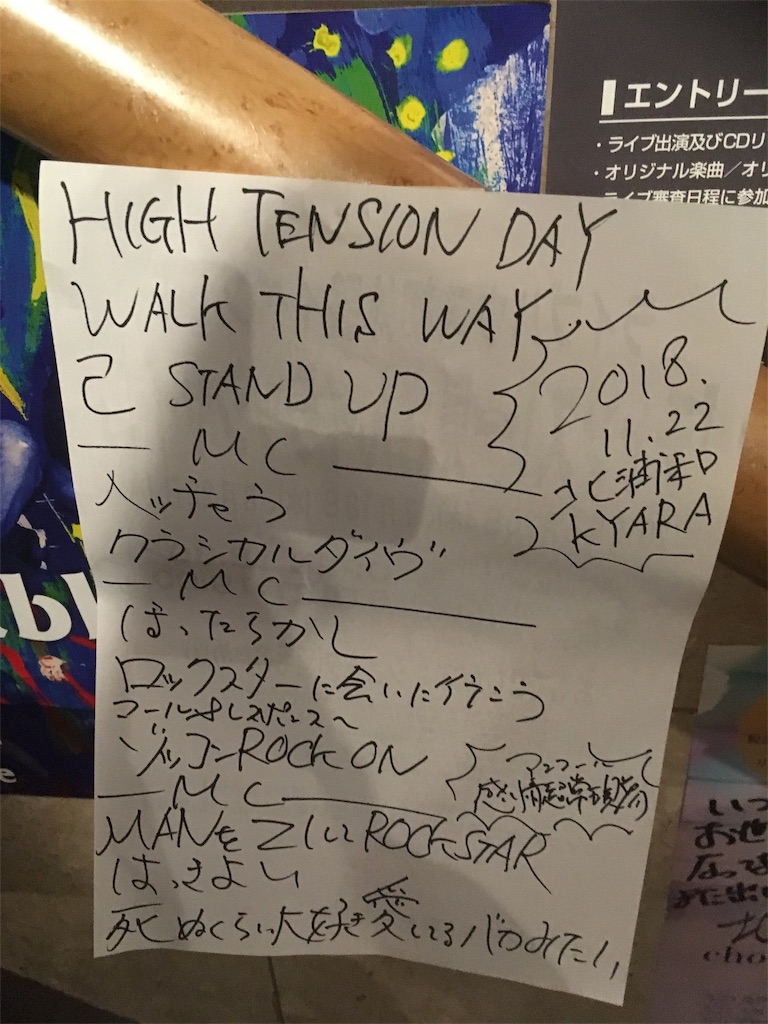 エントリー
・ライブ出演及びCDリ
・オリジナル楽曲／オリ
ライブ審査日程に参加
HIGH TENSION DAY
WALK THIS WAY
己 STAND UP
2018.
11.22
北浦和
KYARA
MC
メッチャう
クラシカルダイヴ
MC
ばったらかし
ロックスターに会いに行こう
コールオレスポンス〜
ゾッコンROCK ON
MC
アンコール
MANを
ROCKSTAR
はっきよい
死ぬくらい大好き愛してるバカみたい
いつ
お世
なって
また出
cho